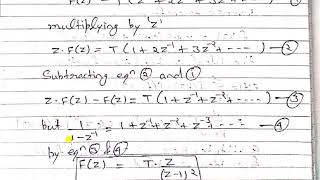 multiplying by 'z'
z·F(z) = T (1 + 2z⁻¹ + 3z⁻² + ---- ) — ②
Subtracting eqⁿ ② and ①
z·F(z) - F(z) = T (1 + z⁻¹ + z⁻² + ---- ) — ③
but 1/(1 - z⁻¹) = 1 + z⁻¹ + z⁻² + z⁻³ ---- — ④
by eqⁿ ③ & ④
F(z) = T · z/(z-1)²